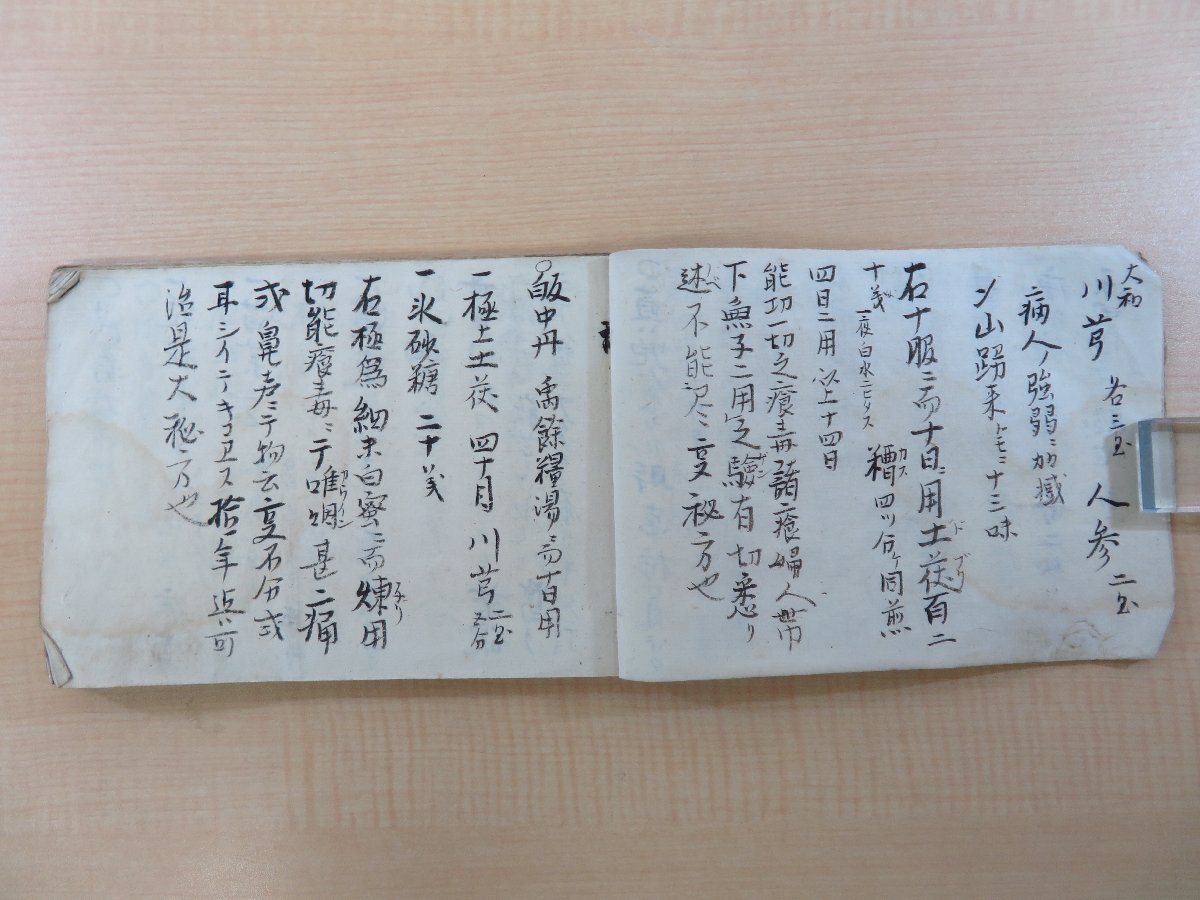 大和
川芎 各三匁 人参 二匁
病人ノ強弱ニ加減
山 来 十三味
右十服ニ而十日ニ用土茯百二
十 一夜白水ニヒタス 糟四ツ分ケ同煎
四日ニ用以上十四日
能功一切之瘡毒諸瘡婦人帯
下魚子ニ用定験有切悉リ
述不能尽ニ変秘方也
飯中丹 禹餘糧湯ニ而百日用
一極上土茯 四十目 川芎 二匁五分
一氷砂糖 二十
右極為細末白蜜ニ而煉用
切能瘡毒ニテ咽甚ニ痛
或鼻声ニテ物云変不分或
耳シイテキコヱス拾年 可
治是大秘方也